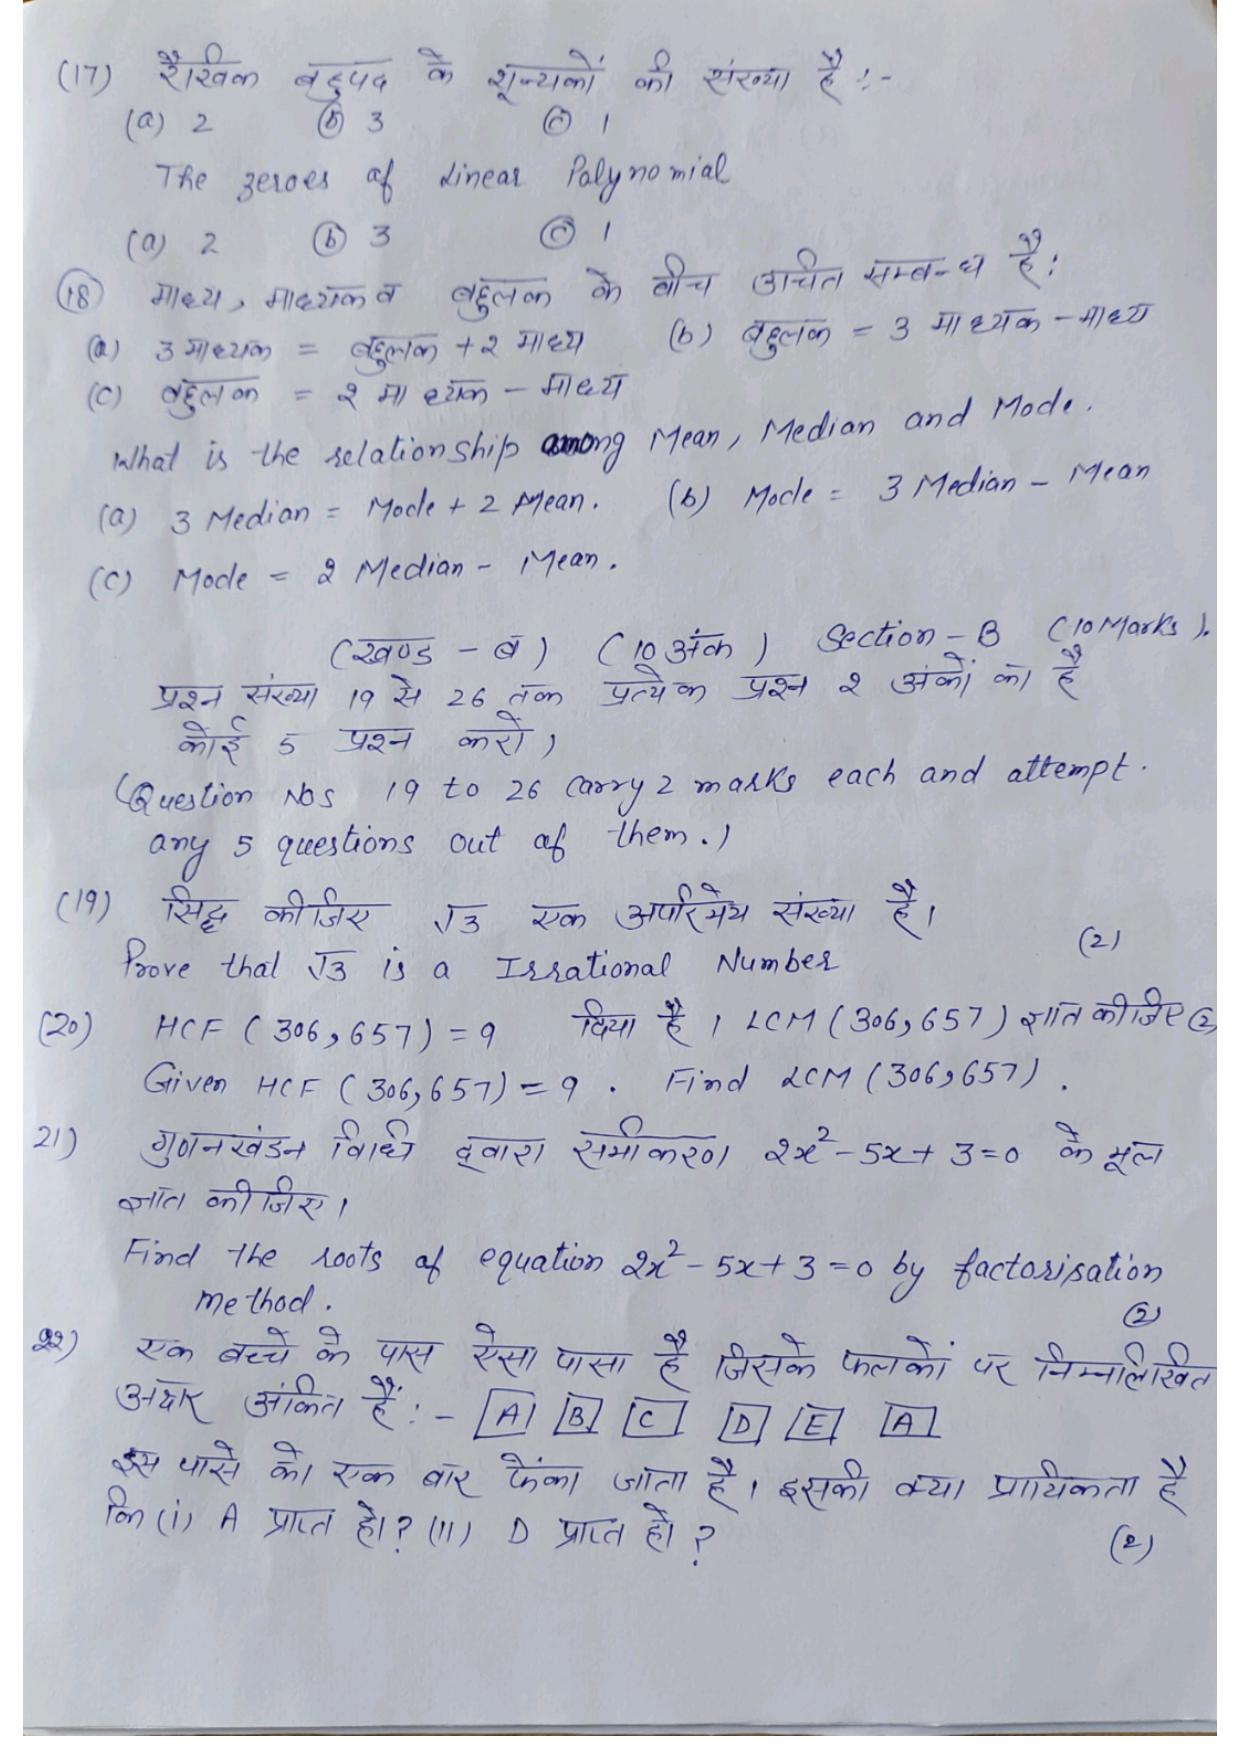 (17) रैखिक बहुपद के शून्यकों की संख्या है :-
(a) 2 (b) 3 (c) 1
The zeroes of Linear Polynomial
(a) 2 (b) 3 (c) 1
(18) माध्य, माध्यक व बहुलक के बीच उचित सम्बन्ध है :
(a) 3 माध्यक = बहुलक + 2 माध्य (b) बहुलक = 3 माध्यक - माध्य
(c) बहुलक = 2 माध्यक - माध्य
What is the relationship among Mean, Median and Mode.
(a) 3 Median = Mode + 2 Mean. (b) Mode = 3 Median - Mean
(c) Mode = 2 Median - Mean.
(खण्ड - ब) (10 अंक) Section - B (10 Marks).
प्रश्न संख्या 19 से 26 तक प्रत्येक प्रश्न 2 अंकों का है
कोई 5 प्रश्न करो)
(Question Nos 19 to 26 carry 2 marks each and attempt.
any 5 questions out of them.)
(19) सिद्ध कीजिए √3 एक अपरिमेय संख्या है।
(2)
Prove that √3 is a Irrational Number
(20) HCF (306, 657) = 9 दिया है । LCM (306, 657) ज्ञात कीजिए (2)
Given HCF (306, 657) = 9 . Find LCM (306, 657) .
21) गुणनखंडन विधि द्वारा समीकरण 2x² - 5x + 3 = 0 के मूल
ज्ञात कीजिए।
Find the roots of equation 2x² - 5x + 3 = 0 by factorisation
method. (2)
22) एक बच्चे के पास ऐसा पासा है जिसके फलकों पर निम्नलिखित
अक्षर अंकित हैं :- A B C D E A
इस पासे को एक बार फेंका जाता है । इसकी क्या प्रायिकता है
कि (i) A प्राप्त हो? (ii) D प्राप्त हो ? (2)